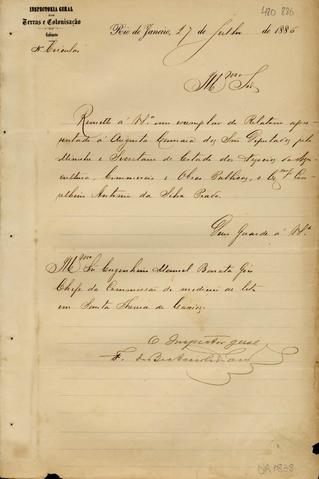 INSPECTORIA GERAL
DAS
Terras e Colonisação
Gabinete
Nº Circular
480 886
Rio de Janeiro, 27 de Julho de 1886
Illmo Snr.
Remetto á V.Sª um exemplar do Relatorio apre-
sentado á Augusta Camara dos Snrs Deputados pelo
Ministro e Secretario de Estado dos Negocios da Agri-
cultura, Commercio e Obras Publicas, o Con-
selheiro Antonio da Silva Prado.
Deus Guarde á V.Sª
Illmo Sr. Engenheiro Manoel Barata Góis
Chefe da Commissão de medição de lotes
em Santa Thereza de Caxias
O Inspector geral
F. de